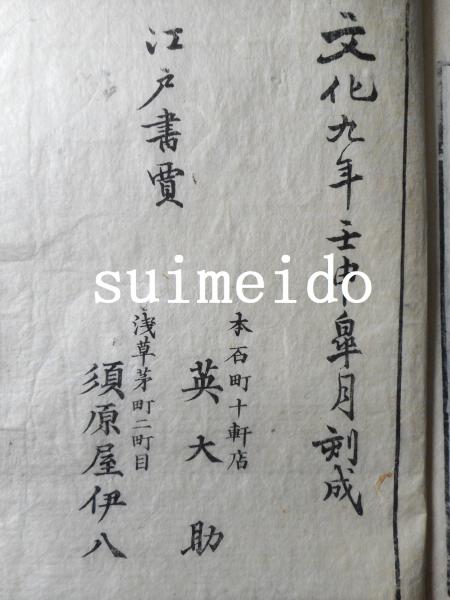 文化九年壬申皐月刻成
江戸書賈
本石町十軒店
英大助
浅草茅町二町目
須原屋伊八
suimeido